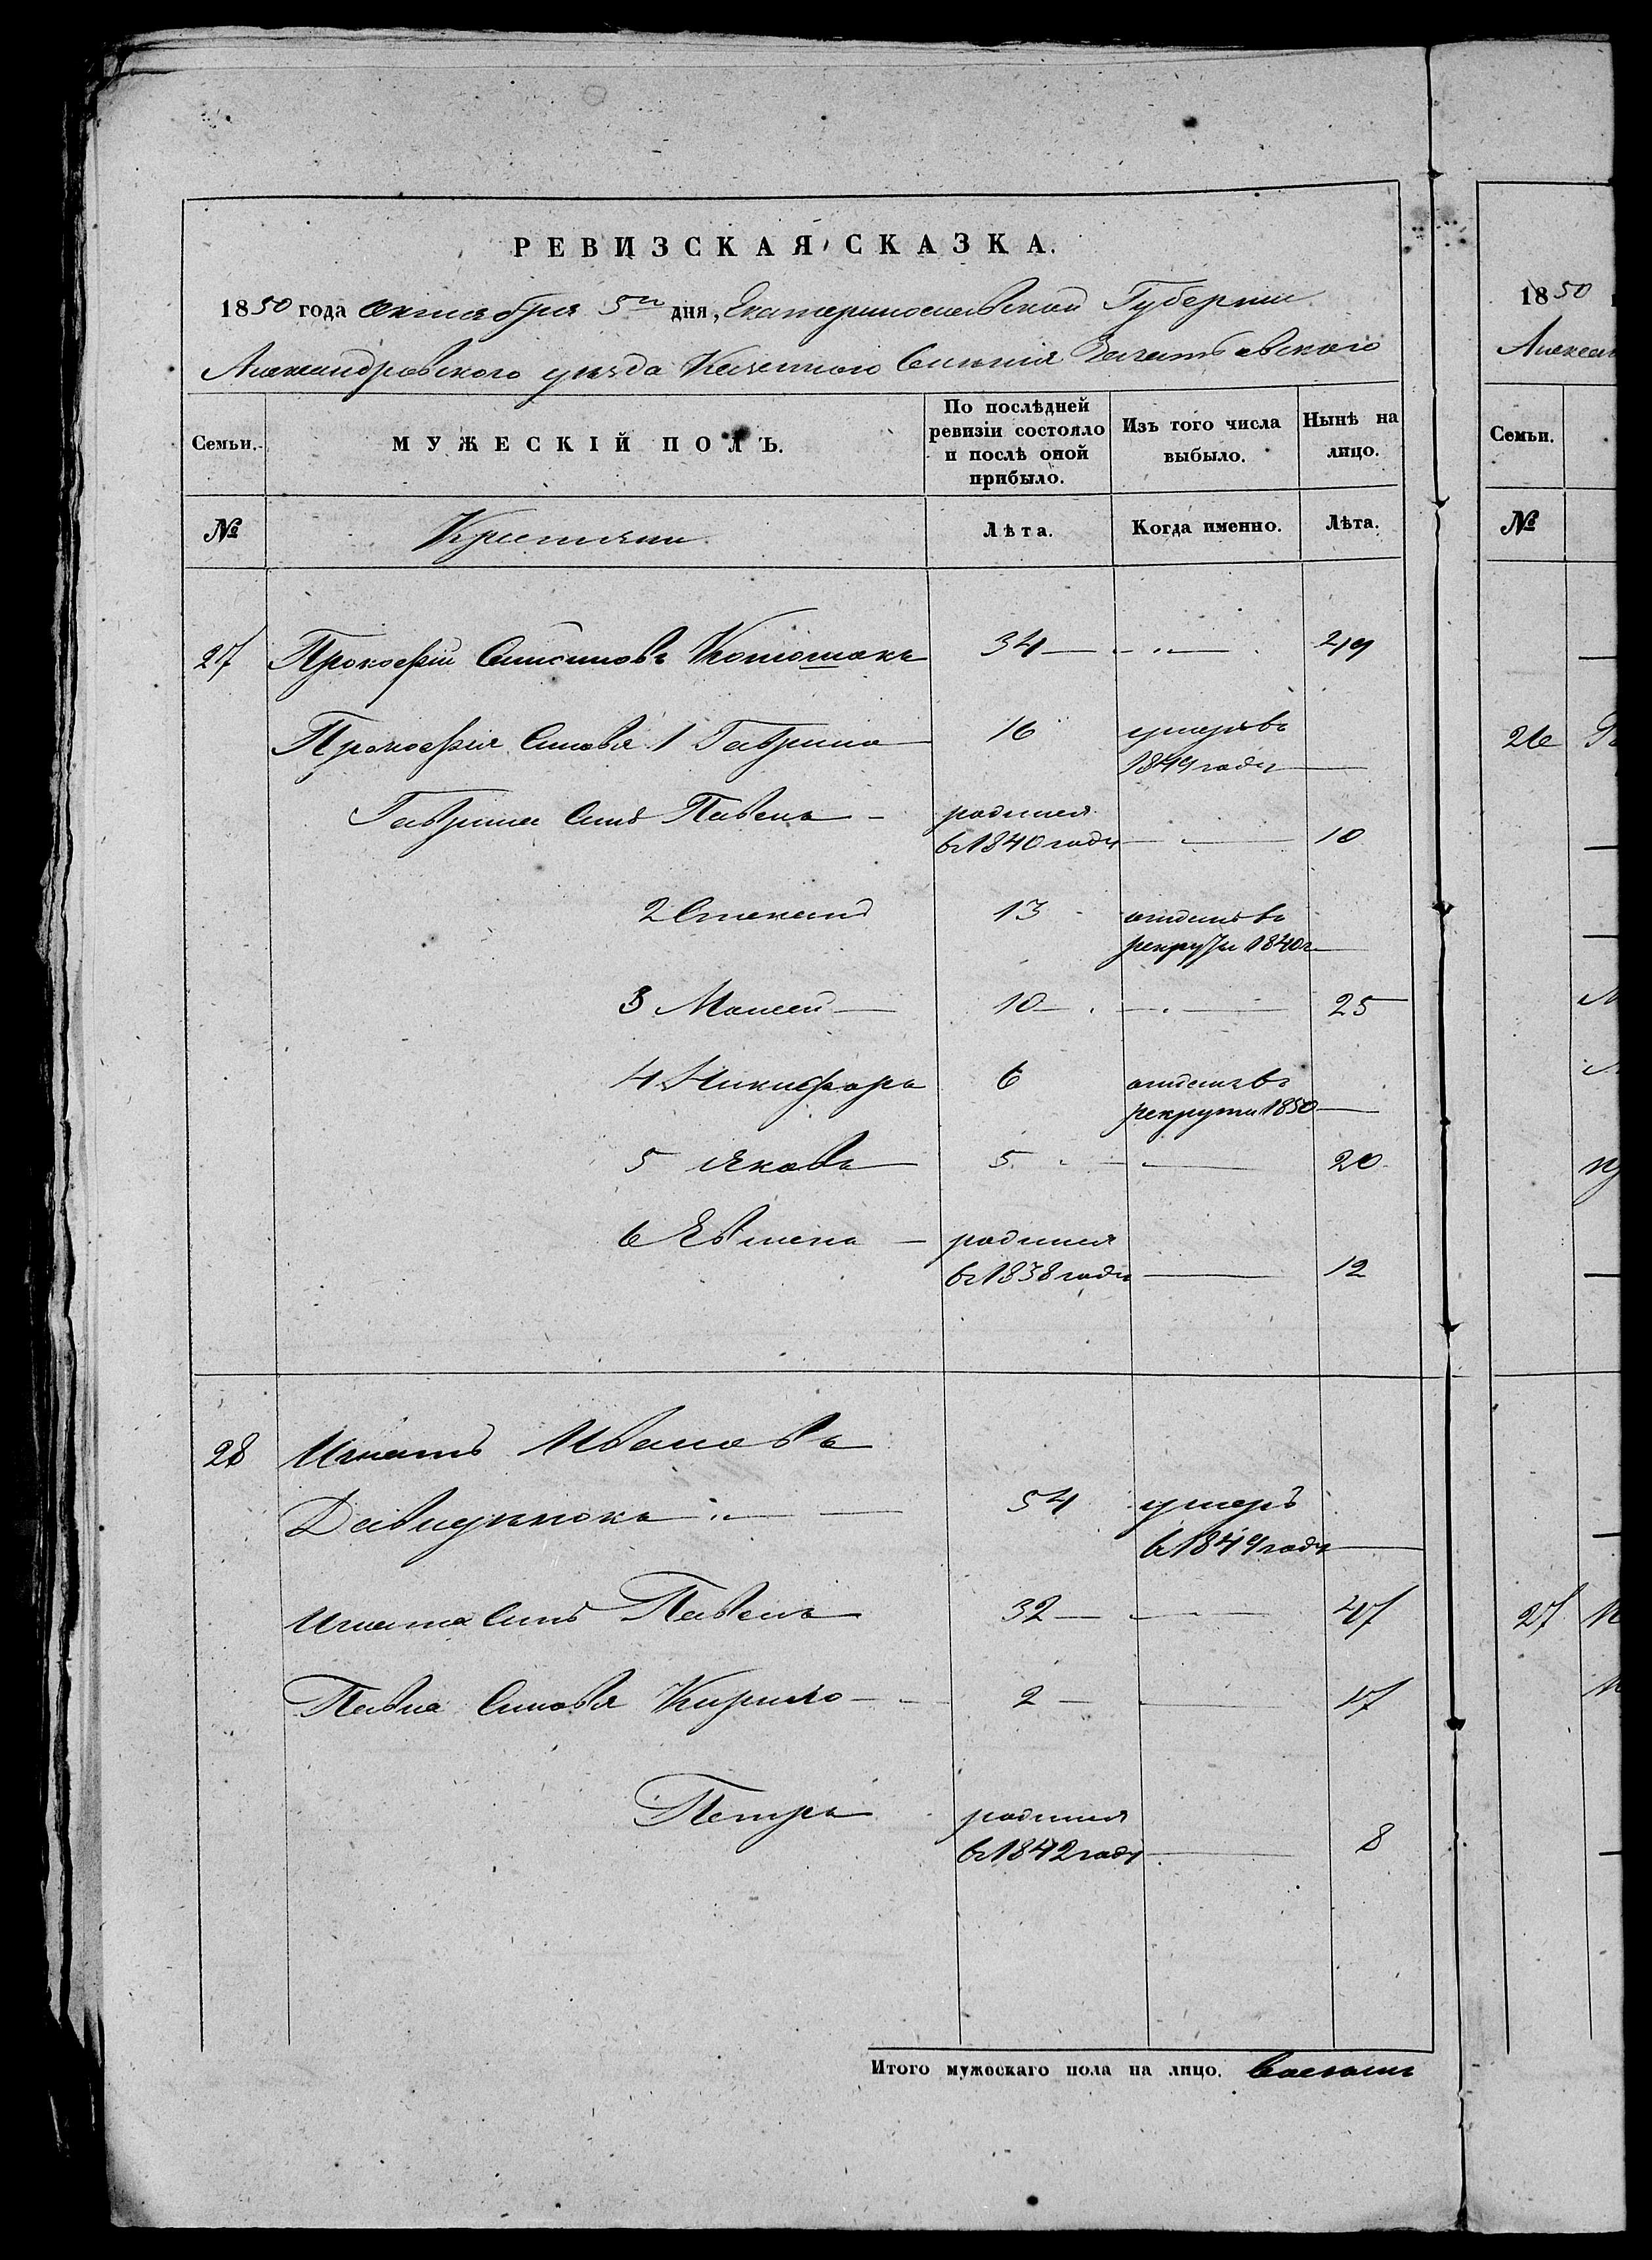 РЕВИЗСКАЯ СКАЗКА.
1850 года октября 5го дня, Екатеринославской Губернии
Александровского уезда Казенного Селения Зачатовского
Семьи.
МУЖЕСКІЙ ПОЛЪ.
По послѣдней ревизіи состояло и послѣ оной прибыло.
Изъ того числа выбыло.
Нынѣ на лицо.
№
Крестяни
Лѣта.
Когда именно.
Лѣта.
27 Прокофій Котюшокъ 34 — — 49
Прокофія Синовя 1 Гаврило 16 умеръ въ
1849 году —
Гаврила Синъ Павелъ — родился
въ 1840 году — 10
2 Степанъ 13 отданъ въ
рекруты 1840 г —
3 Моисей — 10 — — 25
4 Никифоръ 6 отданъ въ
рекруты 1850 —
5 Яковъ 5 — 20
6 — родился
въ 1838 году — 12
28 Игнатъ Ивановъ
54 умеръ
въ 1849 году —
Игната Синъ Павелъ 32 — — 47
Павла Синовя Кирило — 2 — — 17
Петръ родился
въ 1842 году — 8
Итого мужескаго пола на лицо. восемъ
1850
Алексан
Семьи.
№
26
27